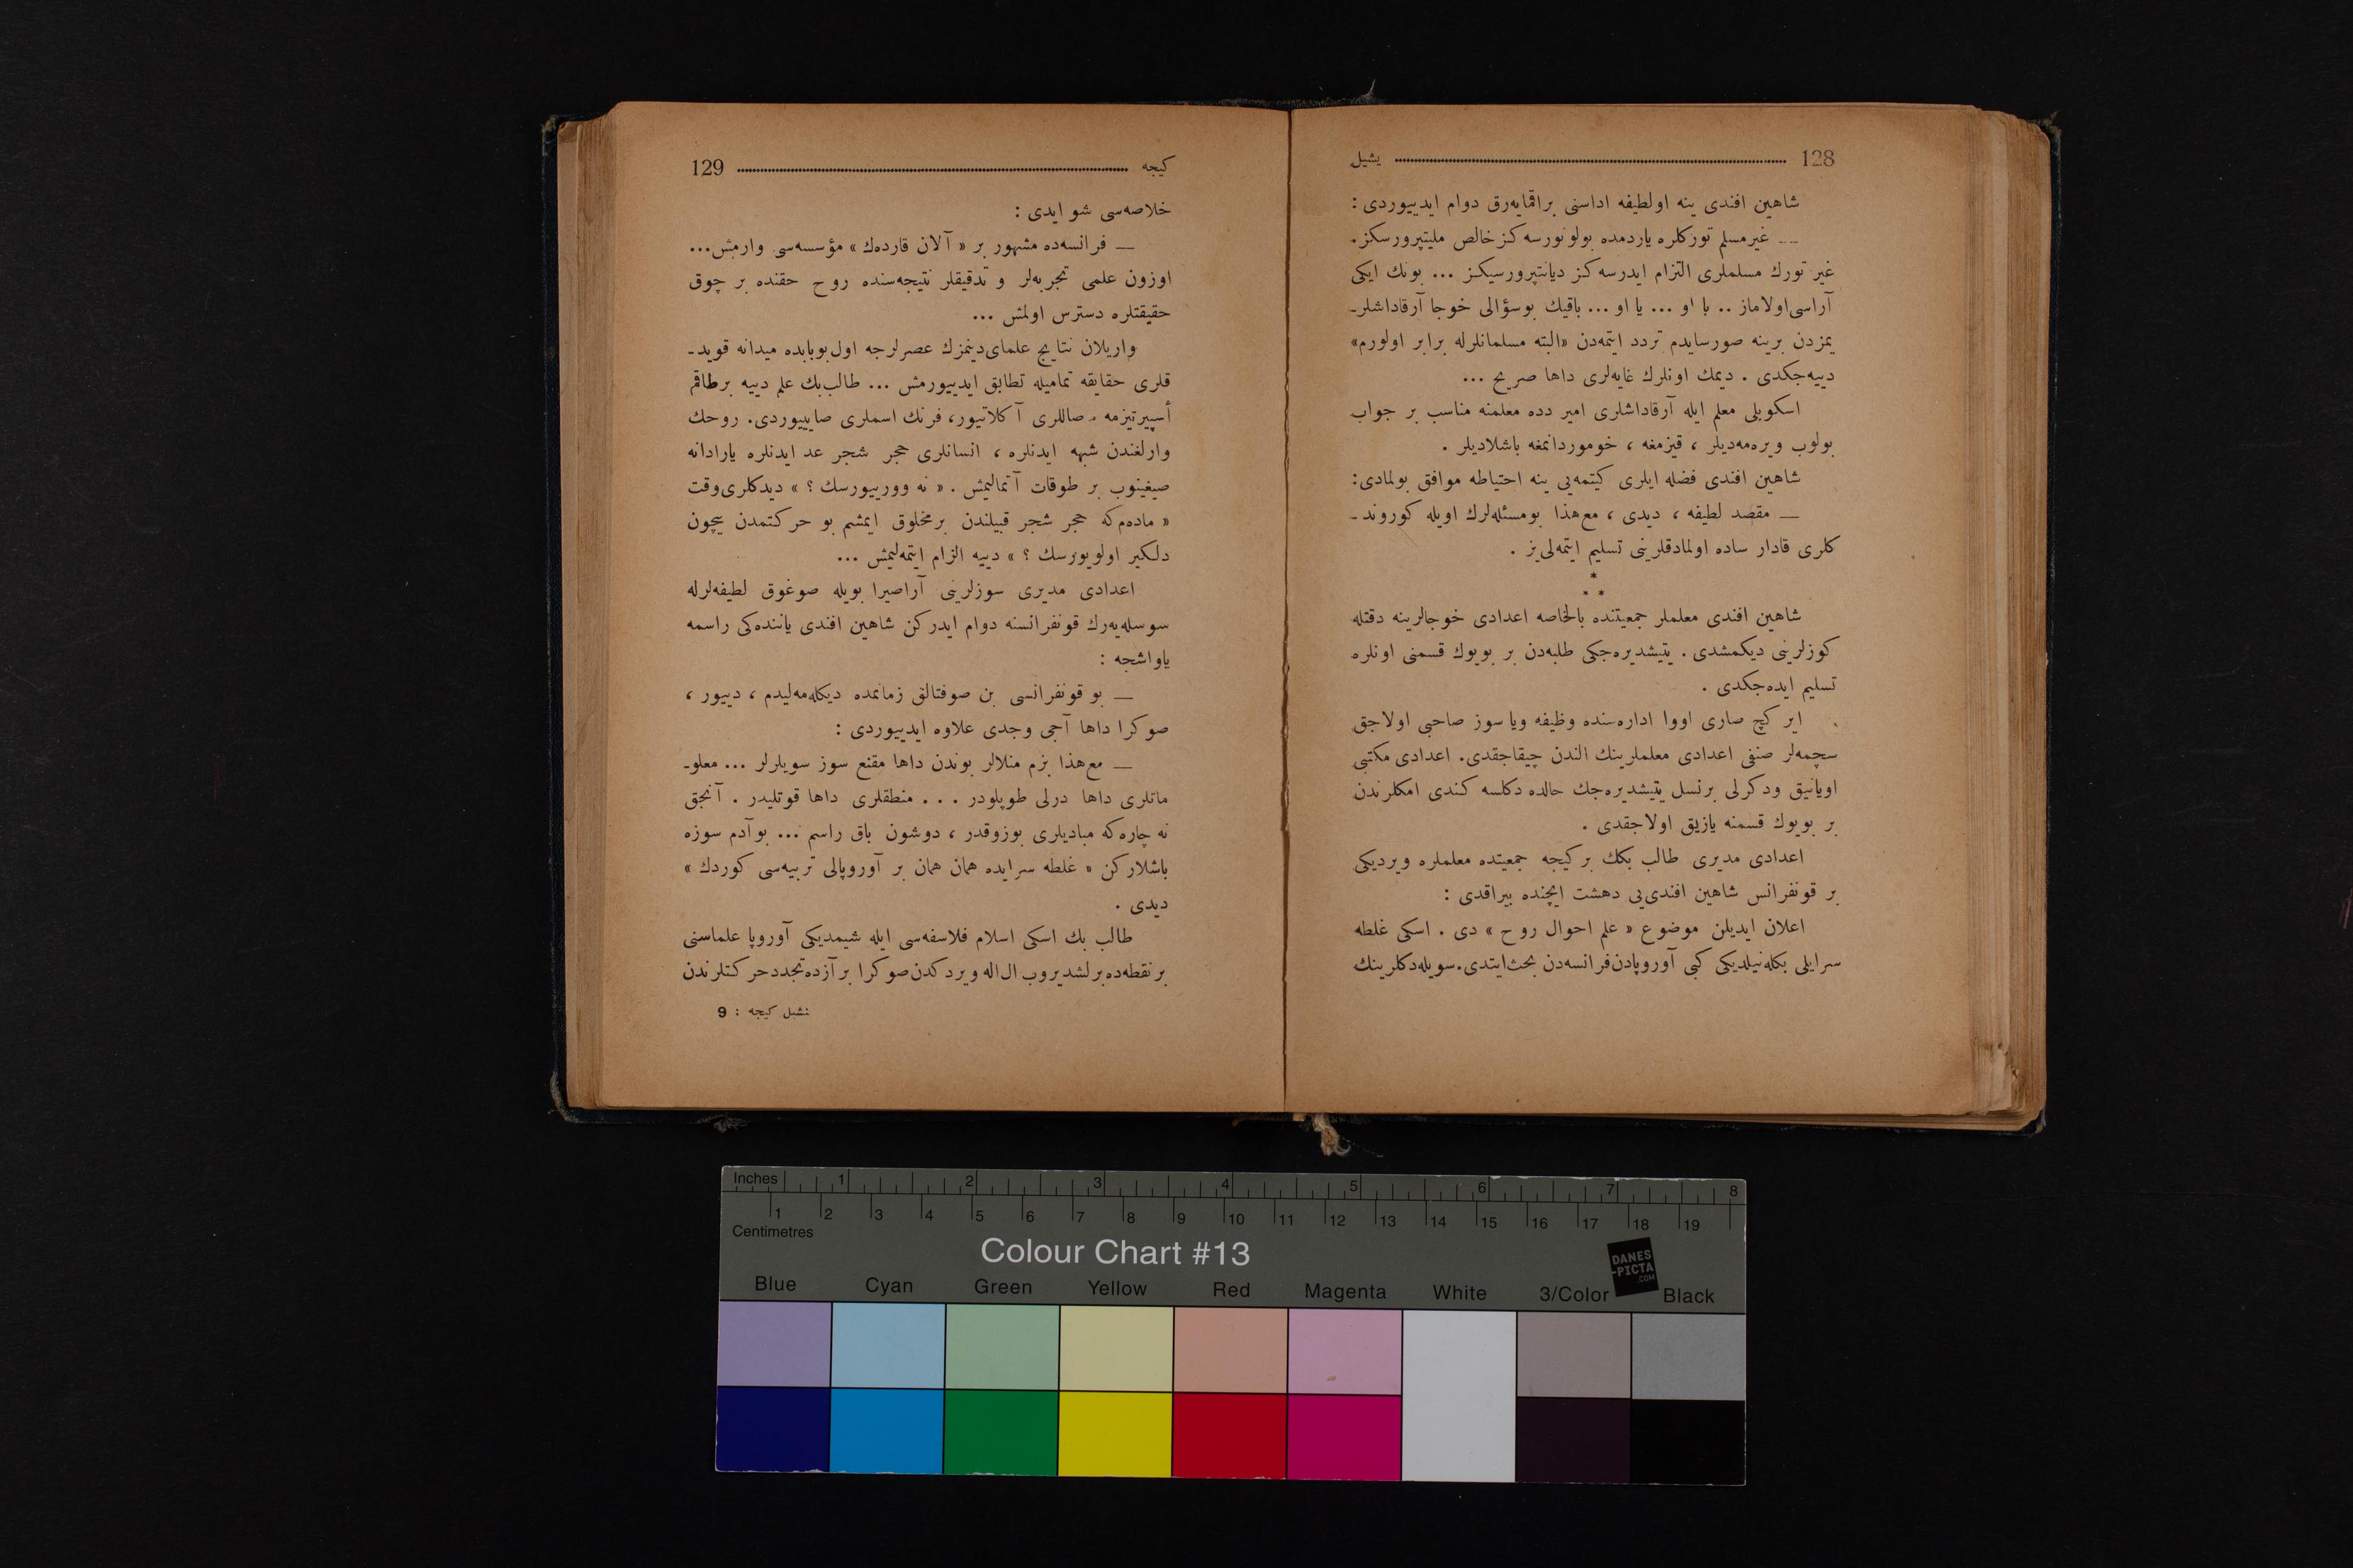 128 يشيل
شاهين افندى ينه اولطيفه اداسنى براقمايه‌رق دوام ايدييوردى :
— غيرمسلم توركلره ياردمده بولونورسه‌كز خالص مليتپرورسكز .
غير تورك مسلملرى التزام ايدرسه‌كز ديانتپرورسيكز ... بونك ايكى
آراسى اولاماز .. يا او ... يا او ... باقيك بوسؤالى خوجا آرقاداشلر-
يمزدن برينه صورسايدم تردد ايتمه‌دن «البته مسلمانلرله برابر اولورم»
دييه‌جكدى . ديمك اونلرك غايه‌لرى داها صريح ...
اسكوبلى معلم ايله آرقاداشلرى امير دده معلمنه مناسب بر جواب
بولوب ويره‌مه‌ديلر ، قيزمغه ، خوموردانمغه باشلاديلر .
شاهين افندى فضله ايلرى كيتمه‌يى ينه احتياطه موافق بولمادى :
— مقصد لطيفه ، ديدى ، مع‌هذا بومسئله‌لرك اويله كوروند-
كلرى قادار ساده اولمادقلرينى تسليم ايتمه‌لى‌يز .
*
* *
شاهين افندى معلملر جمعيتنده بالخاصه اعدادى خوجالرينه دقتله
كوزلرينى ديكمشدى . يتيشديره‌جكى طلبه‌دن بر بويوك قسمنى اونلره
تسليم ايده‌جكدى .
اير كچ صارى اووا اداره‌سنده وظيفه ويا سوز صاحبى اولاجق
سچمه‌لر صنفى اعدادى معلملرينك الندن چيقاجقدى. اعدادى مكتبى
اويانيق ودكرلى برنسل يتيشديره‌جك حالده دكلسه كندى امكلرندن
بر بويوك قسمنه يازيق اولاجقدى .
اعدادى مديرى طالب بكك بر كيجه جمعيتده معلملره ويرديكى
بر قونفرانس شاهين افندى‌يى دهشت ايچنده بيراقدى :
اعلان ايديلن موضوع « علم احوال روح » دى . اسكى غلطه
سرايلى بكله‌نيلديكى كبى آوروپادن فرانسه‌دن بحث ايتدى. سويله‌دكلرينك
كيجه 129
خلاصه‌سى شو ايدى :
— فرانسه‌ده مشهور بر « آلان قارده‌ك » مؤسسه‌سى وارمش ...
اوزون علمى تجربه‌لر و تدقيقلر نتيجه‌سنده روح حقنده بر چوق
حقيقتلره دسترس اولمش ...
واريلان نتايج علماى‌دينمزك عصرلرجه اول بوبابده ميدانه قويد-
قلرى حقايقه تماميله تطابق ايدييورمش ... طالب بك علم دييه برطاقم
أسپيرتيزمه مصاللرى آكلاتيور، فرنك اسملرى صايييوردى. روحك
وارلغندن شبهه ايدنلره ، انسانلرى حجر شجر عد ايدنلره يارادانه
صيغينوب بر طوقات آتماليمش . « نه وورييورسك ؟ » ديدكلرى وقت
« ماده‌م كه حجر شجر قبيلندن برمخلوق ايمشم بو حركتمدن نيچون
دلكير اولويورسك ؟ » دييه الزام ايتمه‌ليمش ...
اعدادى مديرى سوزلرينى آراصيرا بويله صوغوق لطيفه‌لرله
سوسله‌يه‌رك قونفرانسنه دوام ايدركن شاهين افندى ياننده‌كى راسمه
ياواشجه :
— بو قونفرانسى بن صوفتالق زمانمده ديكله‌مه‌ليدم ، دييور ،
صوكرا داها آجى وجدى علاوه ايدييوردى :
— مع‌هذا بزم منلالر بوندن داها مقنع سوز سويلرلر ... معلو-
ماتلرى داها درلى طوپلودر . . . منطقلرى داها قوتليدر . آنجق
نه چاره كه مباديلرى بوزوقدر ، دوشون باق راسم ... بو آدم سوزه
باشلاركن « غلطه سرايده همان همان بر آوروپالى تربيه‌سى كوردك »
ديدى .
طالب بك اسكى اسلام فلاسفه‌سى ايله شيمديكى آوروپا علماسنى
برنقطه‌ده برلشديروب ال اله ويردكدن صوكرا بر آزده تجدد حركتلرندن
يشيل كيجه : 9
Inches 1 2 3 4 5 6 7 8
1 2 3 4 5 6 7 8 9 10 11 12 13 14 15 16 17 18 19
Centimetres
Colour Chart #13
DANES
-PICTA
.COM
Blue Cyan Green Yellow Red Magenta White 3/Color Black